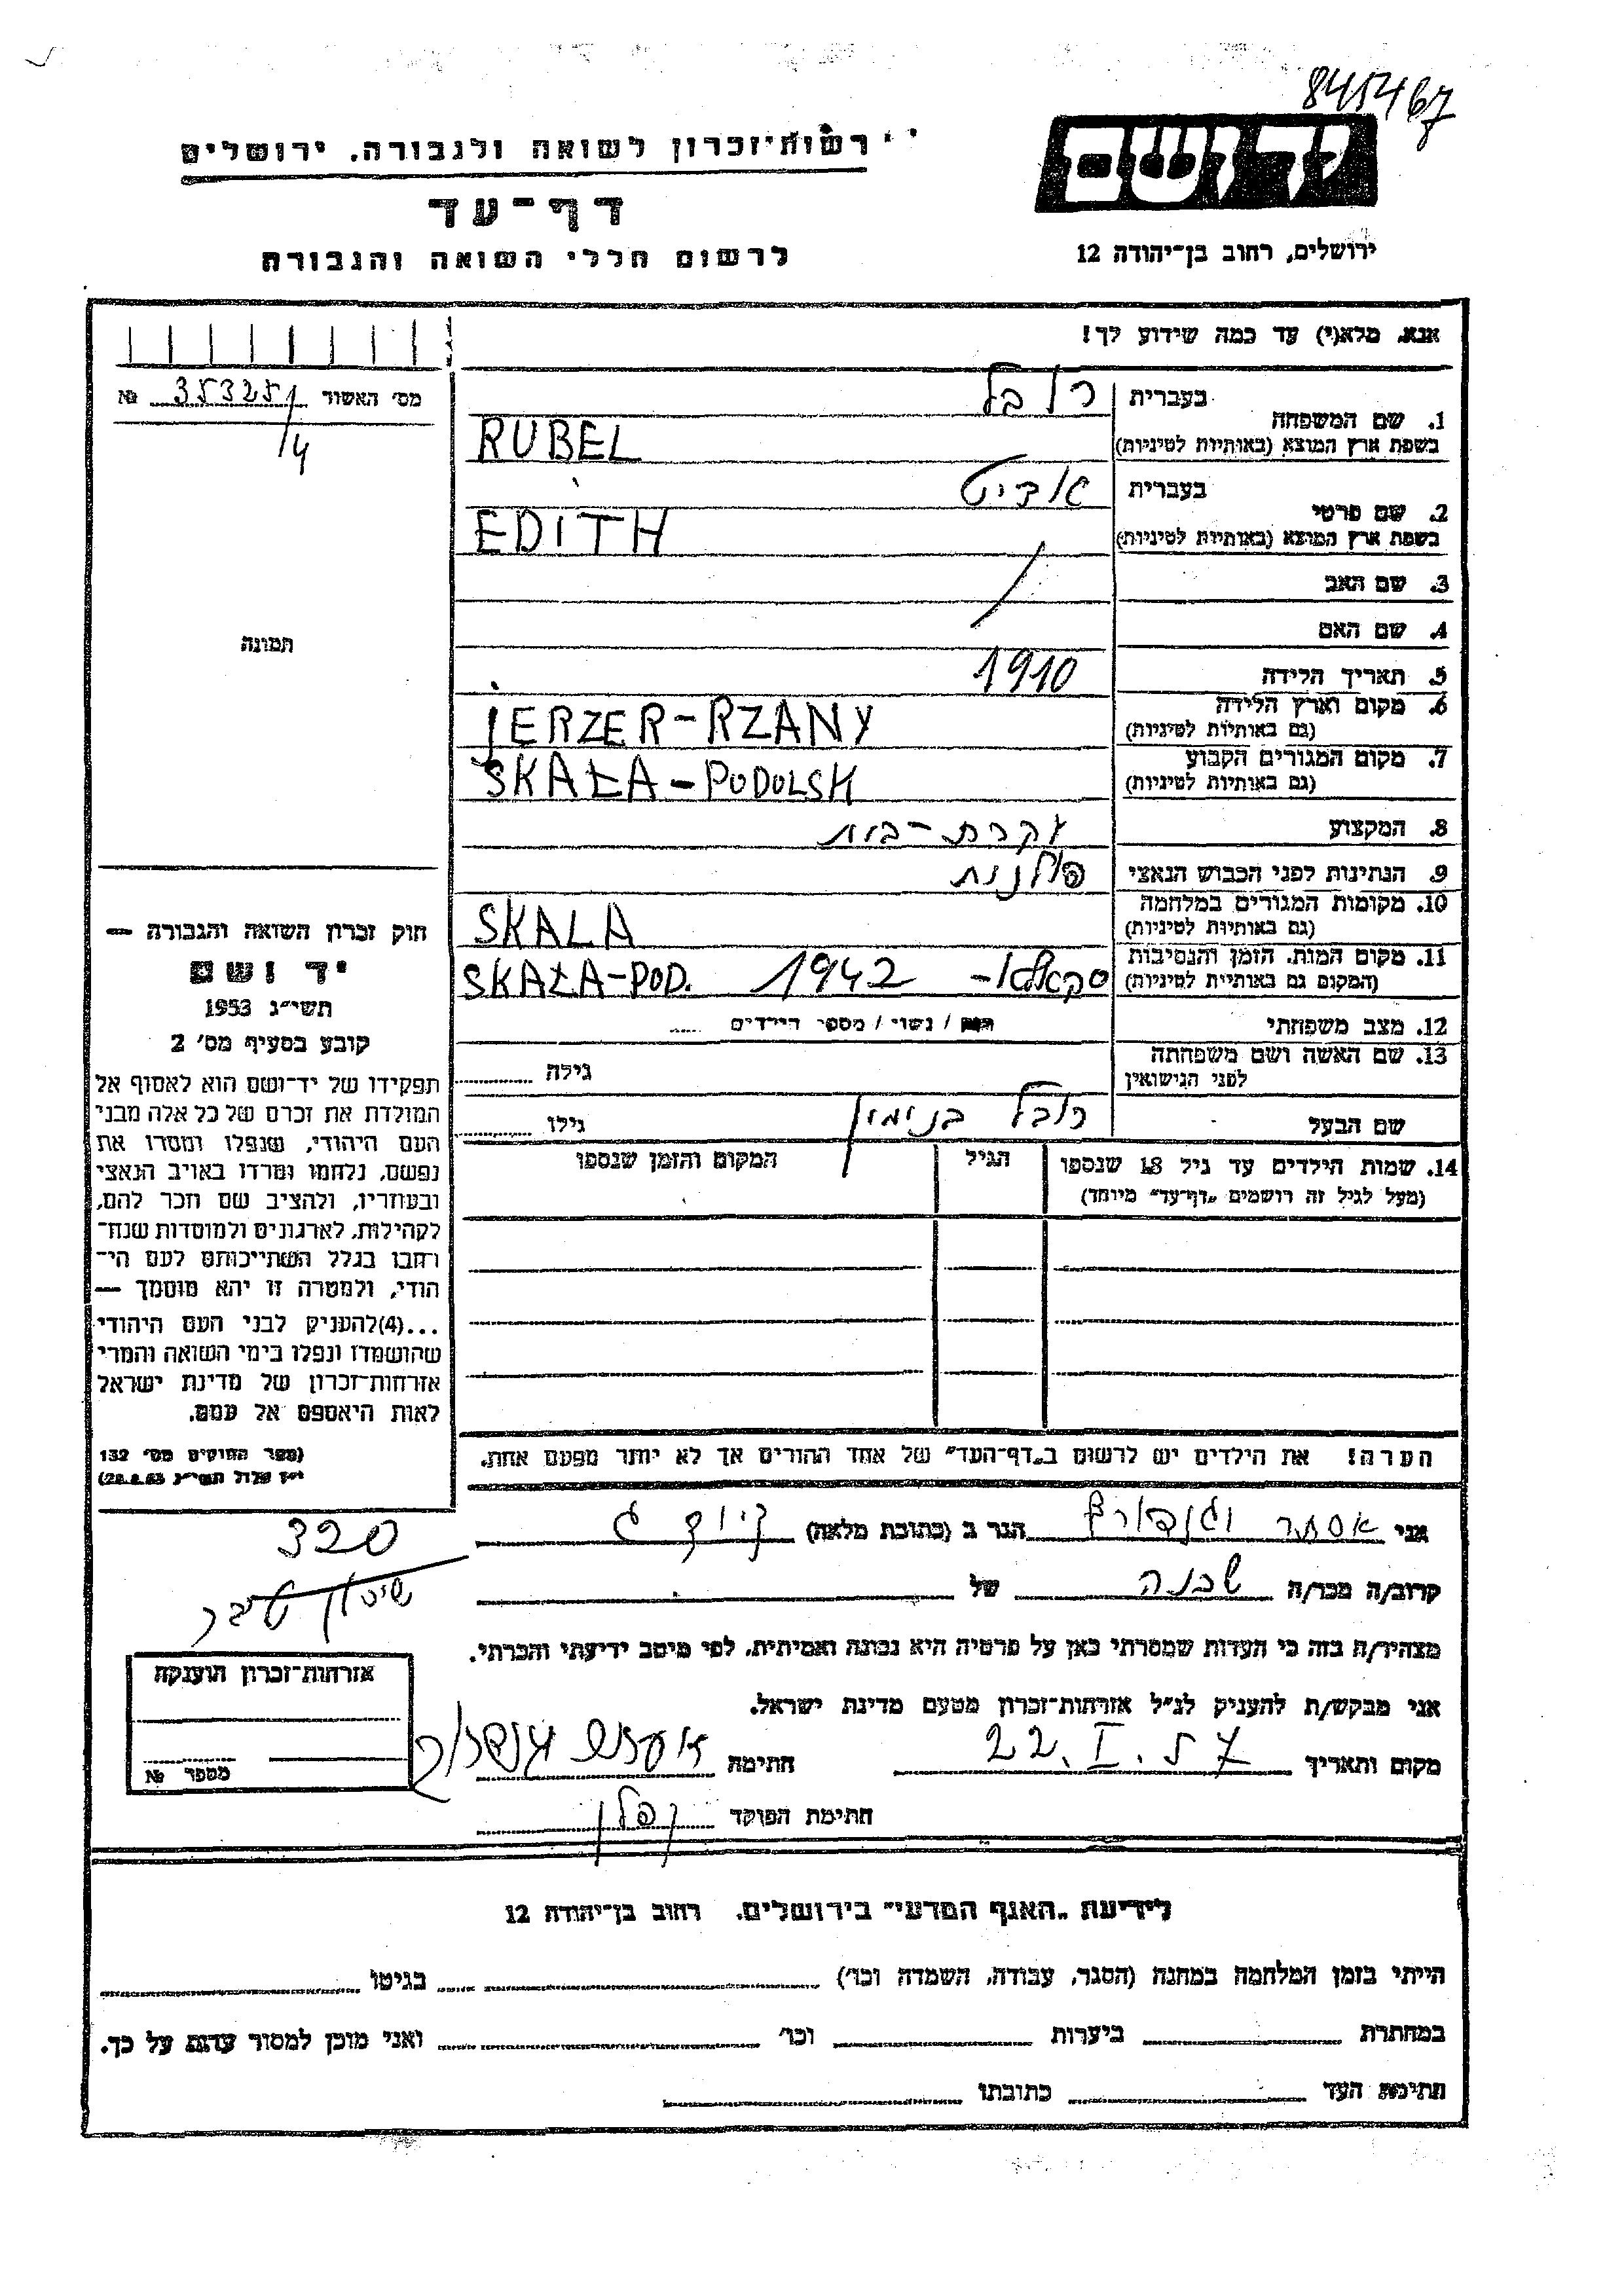 845467
רשות־זכרון לשואה ולגבורה. ירושלים
יד ושם
דף־עד
לרשום חללי השואה והגבורה
ירושלים, רחוב בן־יהודה 12
אנא. מלא(י) עד כמה שידוע לך!
מס׳ האשור 35325/4 №
תמונה
1. שם המשפחה
בעברית רובל
בשפת ארץ המוצא (באותיות לטיניות) RUBEL
2. שם פרטי
בעברית אדיט
בשפת ארץ המוצא (באותיות לטיניות) EDITH
3. שם האב
4. שם האם
5. תאריך הלידה 1910
6. מקום וארץ הלידה
(גם באותיות לטיניות) JERZER-RZANY
7. מקום המגורים הקבוע
(גם באותיות לטיניות) SKAŁA-PODOLSK
8. המקצוע עקרת-בית
9. הנתינות לפני הכבוש הנאצי פולנית
10. מקומות המגורים במלחמה
(גם באותיות לטיניות) SKALA
11. מקום המות. הזמן והנסיבות
(המקום גם באותיית לטיניות) סקאלא- 1942 SKAŁA-POD.
12. מצב משפחתי רווק / נשוי / מספר הילדים
13. שם האשה ושם משפחתה
לפני הנישואין גילה
שם הבעל רובל בנימין גילו
14. שמות הילדים עד גיל 18 שנספו הגיל המקום והזמן שנספו
(מעל לגיל זה רושמים „דף־עד״ מיוחד)
הערה! את הילדים יש לרשום ב„דף־העד״ של אחד ההורים אך לא יותר מפעם אחת.
חוק זכרון השואה והגבורה —
יד ושם
תשי״ג 1953
קובע בסעיף מס׳ 2
תפקידו של יד־ושם הוא לאסוף אל
המולדת את זכרם של כל אלה מבני
העם היהודי, שנפלו ומסרו את
נפשם, נלחמו ומרדו באויב הנאצי
ובעוזריו, ולהציב שם וזכר להם,
לקהילות, לארגונים ולמוסדות שנח־
רחבו בגלל השתייכותם לעם הי־
הודי, ולמטרה זו יהא מוסמך —
...(4)להעניק לבני העם היהודי
שהושמדו ונפלו בימי השואה והמרי
אזרחות־זכרון של מדינת ישראל
לאות היאספם אל עמם.
(ספר החוקים מס׳ 132
י״ז אלול תשי״ג 28.8.53)
אני אסתר הגר ב (כתובת מלאה)
320
קרוב/ה מכר/ה שכנה של
מצהיר/ה בזה כי העדות שמסרתי כאן על פרטיה היא נכונה ואמיתית, לפי מיטב ידיעתי והכרתי.
אני מבקש/ת להעניק לנ״ל אזרחות־זכרון מטעם מדינת ישראל.
מקום ותאריך 22.I.57 חתימה
חתימת הפוקד קפלן
אזרחות־זכרון הוענקה
מספר №
לידיעת „האגף המדעי״ בירושלים. רחוב בן־יהודה 12
הייתי בזמן המלחמה במחנה (הסגר, עבודה, השמדה וכו׳) בגיטו
במחתרת ביערות וכו׳ ואני מוכן למסור עדות על כך.
חתימת העד כתובתו